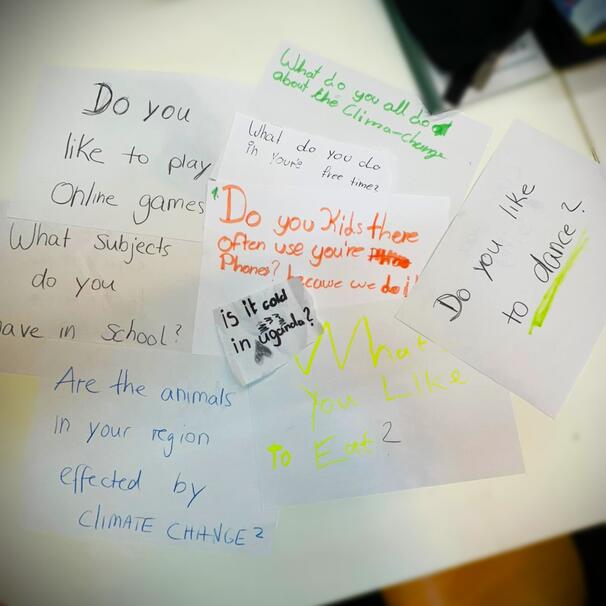 What do you all do
about the Clima-Change
Do you
like to play
Online games
What do you do
in youre free time?
Do you Kids there
often use you're
Phones? becauwe we do it
Do you like
to dance?
What subjects
do you
have in school?
is it cold
in uganda?
What
you Like
To Eat?
Are the animals
in your region
effected by
CLIMATE CHANGE?